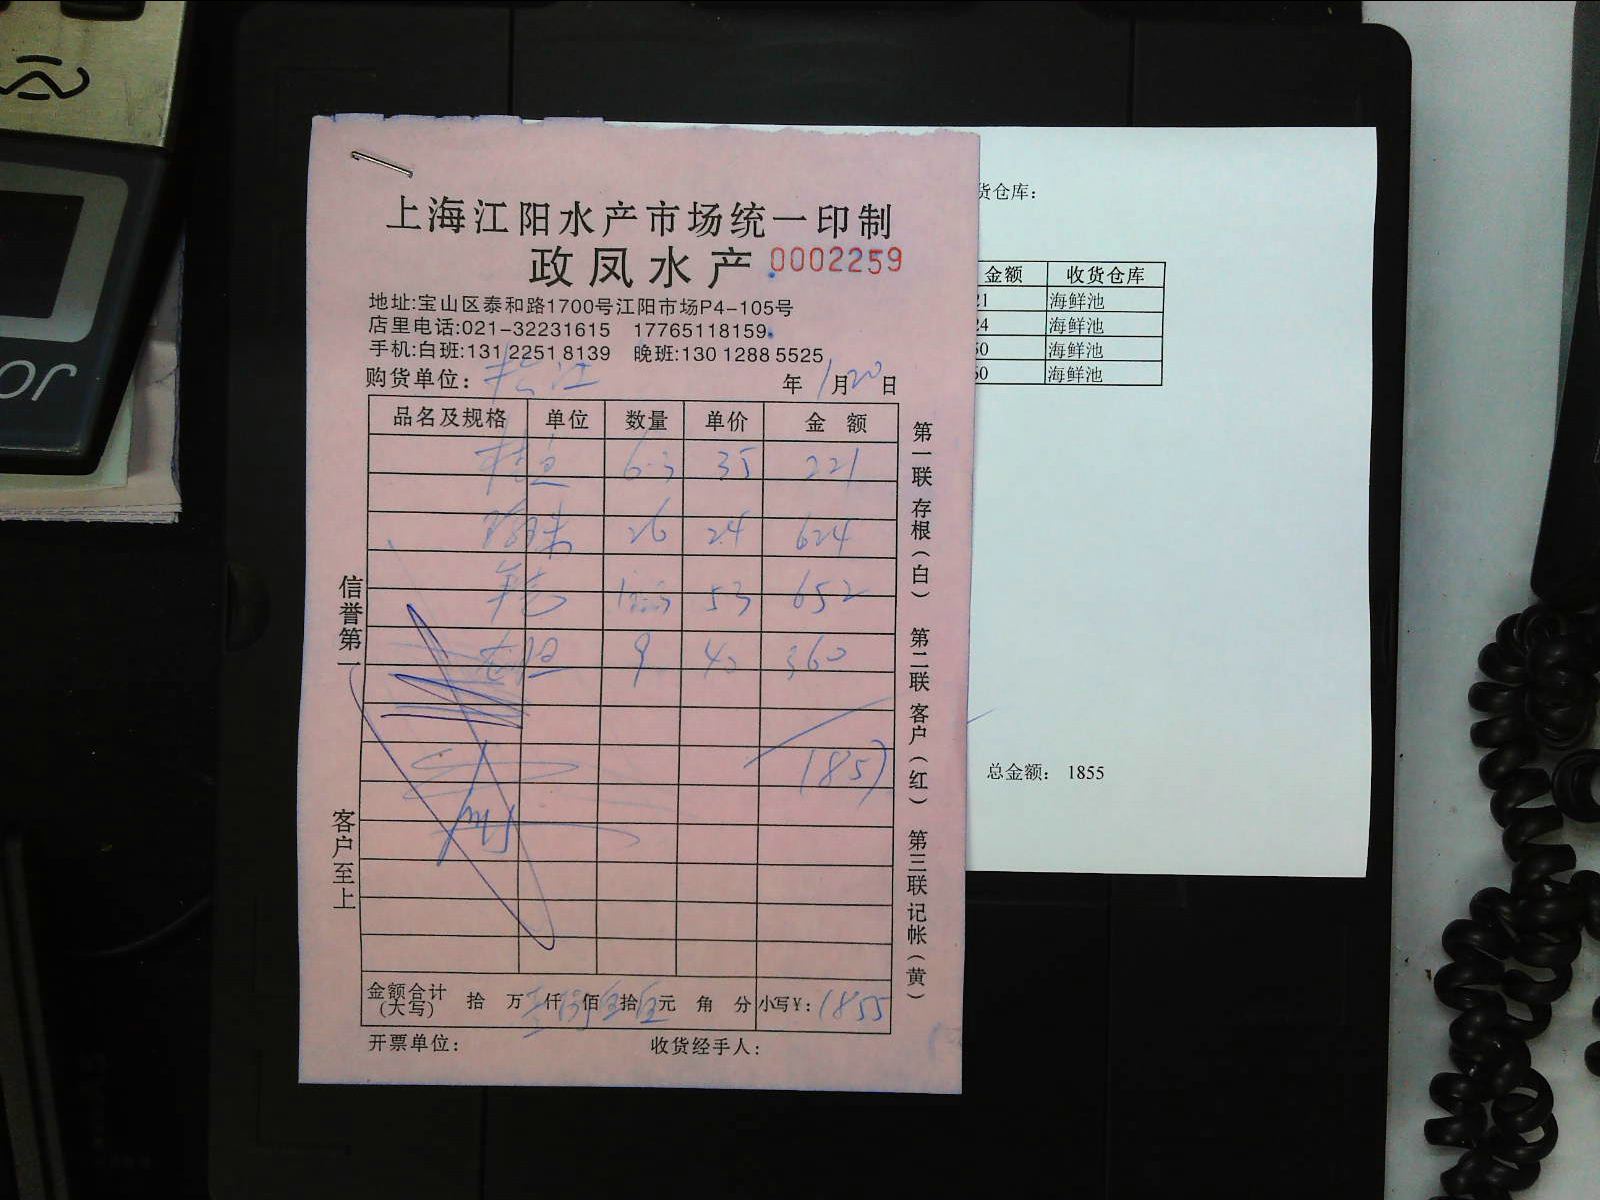 上海江阳水产市场统一印制
政凤水产 0002259
地址:宝山区泰和路1700号江阳市场P4-105号
店里电话:021-32231615 17765118159
手机:白班:131 2251 8139 晚班:130 1288 5525
购货单位: 松江 年 1 月 20 日
品名及规格 单位 数量 单价 金 额
6.3 35 221
26 24 624
53 652
9 40 360
1857
金额合计(大写) 拾 万 仟 佰 拾 元 角 分 小写¥: 1855
开票单位: 收货经手人:
信誉第一
客户至上
第一联 存根(白) 第二联 客户(红) 第三联 记帐(黄)
货仓库:
金额 收货仓库
21 海鲜池
24 海鲜池
50 海鲜池
60 海鲜池
总金额: 1855